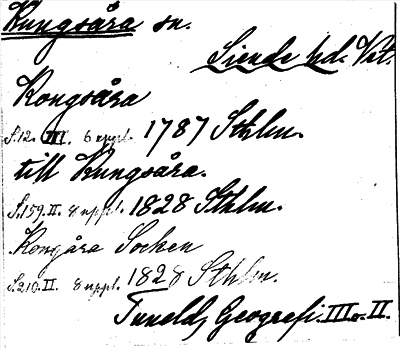 Kungsåra sn.
Siende hd. Vst.
Kongsåra
S.12. III. 6 uppl. 1787 Sthlm.
till Kungsåra.
S.159. II. 8 uppl. 1828 Sthlm.
Kongåra Socken
S.210. II. 8 uppl. 1828 Sthlm.
Tunelds Geografi. III o. II.